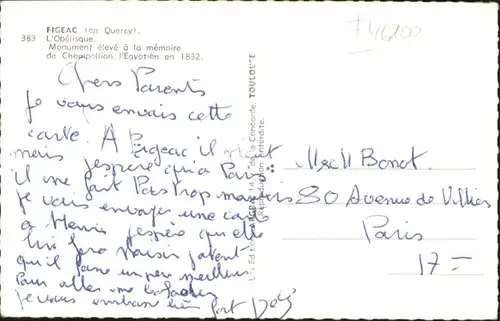 FIGEAC (en Quercy).
383 L'Obélisque.
Monument élevé à la mémoire
de Champollion l'Egyptien en 1832.
Chers Parents
Je vous envais cette
carte. A Figeac il
mais j'espère qu'à Paris
il ne fait Pas trop mauvais
je vais envoyer une carte
a Henri j'espère qu'elle
lui fera plaisir
qu'il fasse un peu meilleur
Pour aller me
je vous embrasse bien fort
de la Concorde, TOULOUSE
Reproduction interdite.
F46100
M et M Bonot.
80 Avenue de Villiers
Paris
17